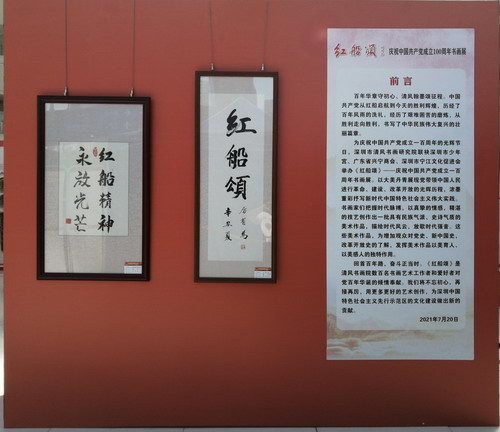 红船精神
永放光芒
红船颂
辛丑夏
红船颂 庆祝中国共产党成立100周年书画展
前言
百年华章守初心，清风翰墨颂征程。中国
共产党从红船启航到今天的胜利辉煌，历经了
百年风雨的洗礼，经历了艰难困苦的磨炼，从
胜利走向胜利，书写了中华民族伟大复兴的壮
丽篇章。
为庆祝中国共产党成立一百周年的光辉节
日，深圳市清风书画研究院联袂深圳市少年
宫、广东省兴宁商会、深圳市宁江文化促进会
举办《红船颂》——庆祝中国共产党成立一百
周年书画展，以大美丹青展现党带领中国人民
进行革命、建设、改革开放的光辉历程，浓墨
重彩抒写新时代中国特色社会主义伟大实践。
书画家们把握时代脉搏，以真挚的情感、精湛
的技艺创作出一批具有民族气派、史诗气质的
美术作品，描绘时代风云，放歌时代强音，这
些美术作品，为增加观众对党史、新中国史、
改革开放史的了解，发挥美术作品以美育人、
以美感人的独特作用。
回首百年路，奋斗正当时，《红船颂》是
清风书画院数百名书画艺术工作者和爱好者对
党百年华诞的倾情奉献，我们将不忘初心，再
接再历，用更多更好的艺术创作，为深圳中国
特色社会主义先行示范区的文化建设做出新的
贡献。
2021年7月20日